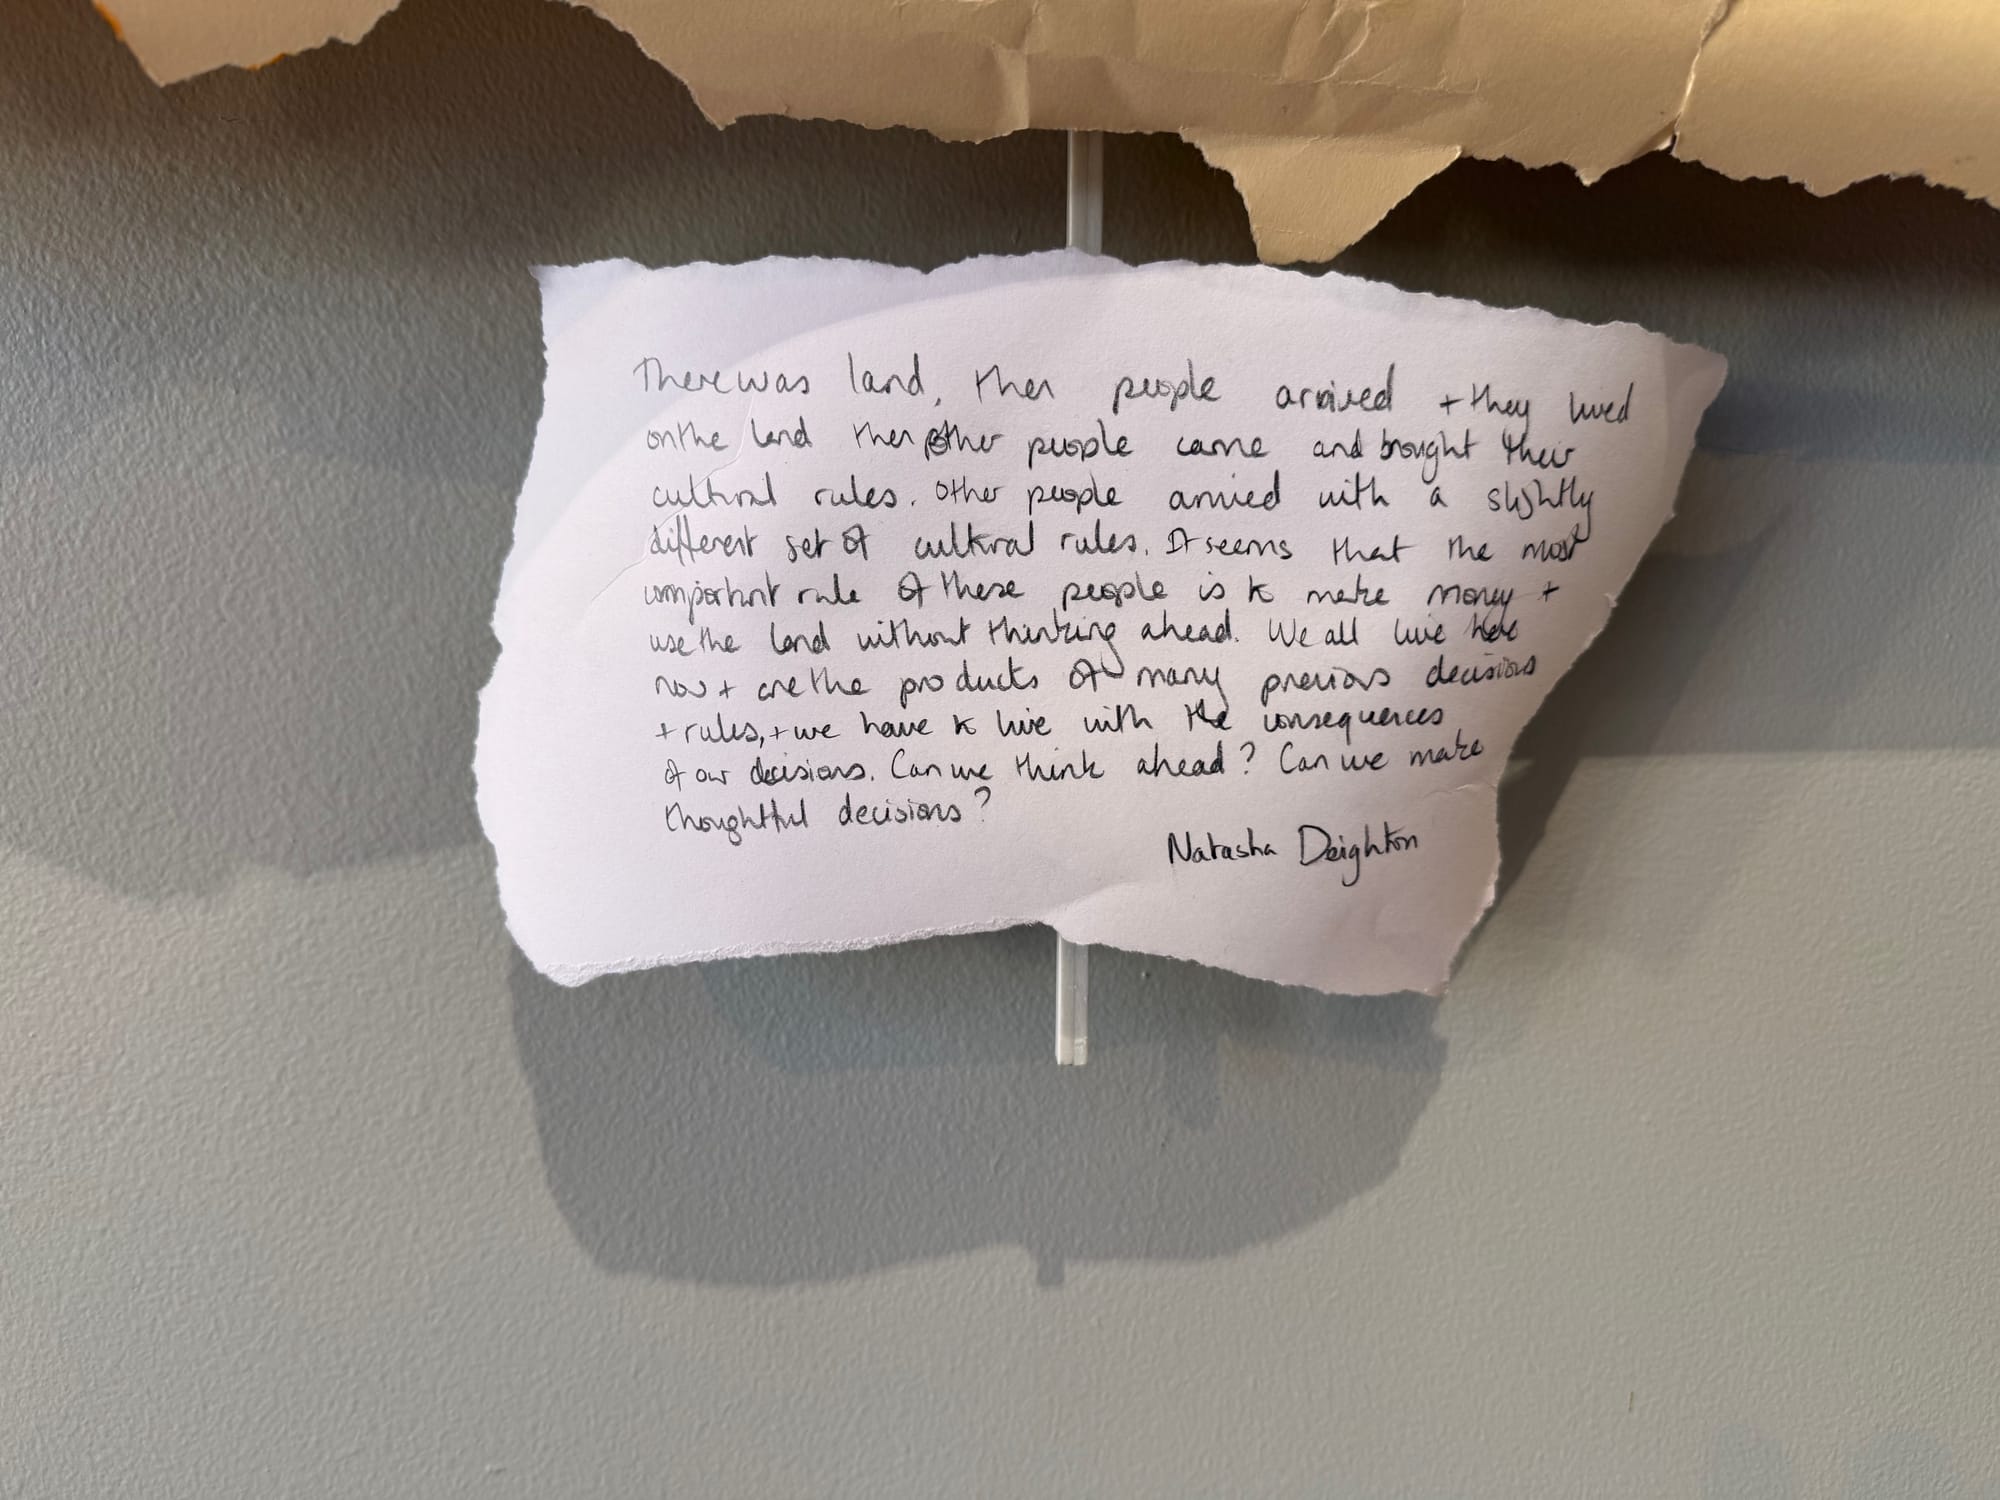 There was land, then people arrived + they lived
on the land then other people came and brought their
cultural rules. Other people arrived with a slightly
different set of cultural rules. It seems that the most
important rule of these people is to make money +
use the land without thinking ahead. We all live here
now + are the products of many previous decisions
+ rules, + we have to live with the consequences
of our decisions. Can we think ahead? Can we make
thoughtful decisions?
Natasha Deighton